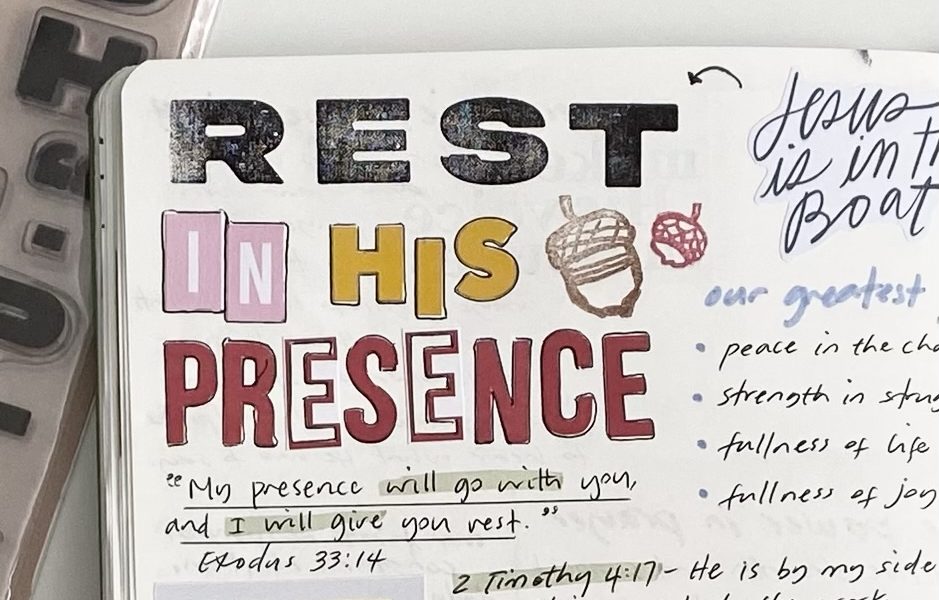 REST
IN HIS
PRESENCE
"My presence will go with you,
and I will give you rest."
Exodus 33:14
Jesus
is in
Boat
our greatest
• peace in the
• strength in
• fullness of life
• fullness of joy
2 Timothy 4:17 - He is by my side